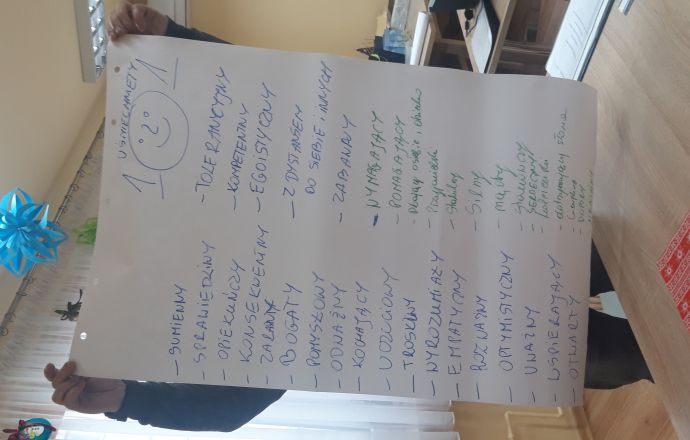 UŚMIECHNIĘTY
1 1
- SUMIENNY
- SPRAWIEDLIWY
- OPIEKUŃCZY
- KONSEKWENTNY
ZARADNY
- BOGATY
- POMYSŁOWY
- ODWAŻNY
- KOCHAJĄCY
- UCZUCIOWY
- TROSKLIWY
- WYROZUMIAŁY
- EMPATYCZNY
- ROZWAŻNY
- OPTYMISTYCZNY
- UWAŻNY
- WSPIERAJĄCY
- OTWARTY
- TOLERANCYJNY
- KOMPETENTNY
- EGOISTYCZNY
- Z DYSTANSEM
DO SIEBIE I INNYCH
- ZABAWNY
- WYMAGAJĄCY
- POMAGAJĄCY
- Przyjaciel
- Stabilny
- Silny
- mądry
- Stanowczy
- SERDECZNY
- dotrzymujący słowa